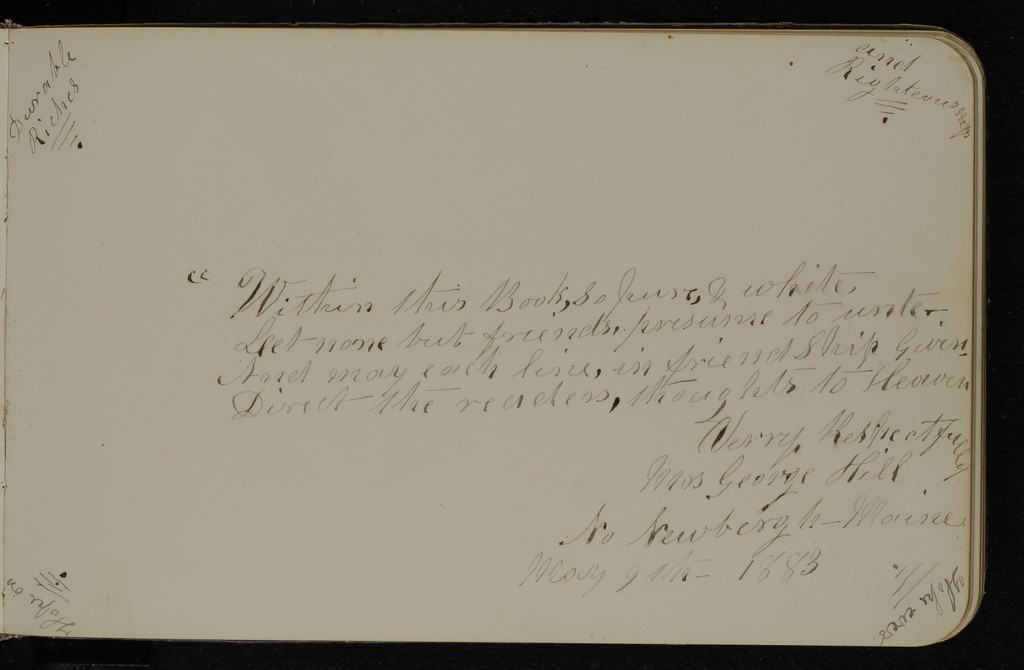 Durable
Riches
and
Righteousness
" Within this Book, so pure, & white,
Let none but friends, presume to write.
And may each line, in friendShip Given,
Direct the readers, thoughts to Heaven
Verry Respectfully
Mrs George Hill
No Newbergh - Maine
May 9th - 1883
Hope on
Hope ever